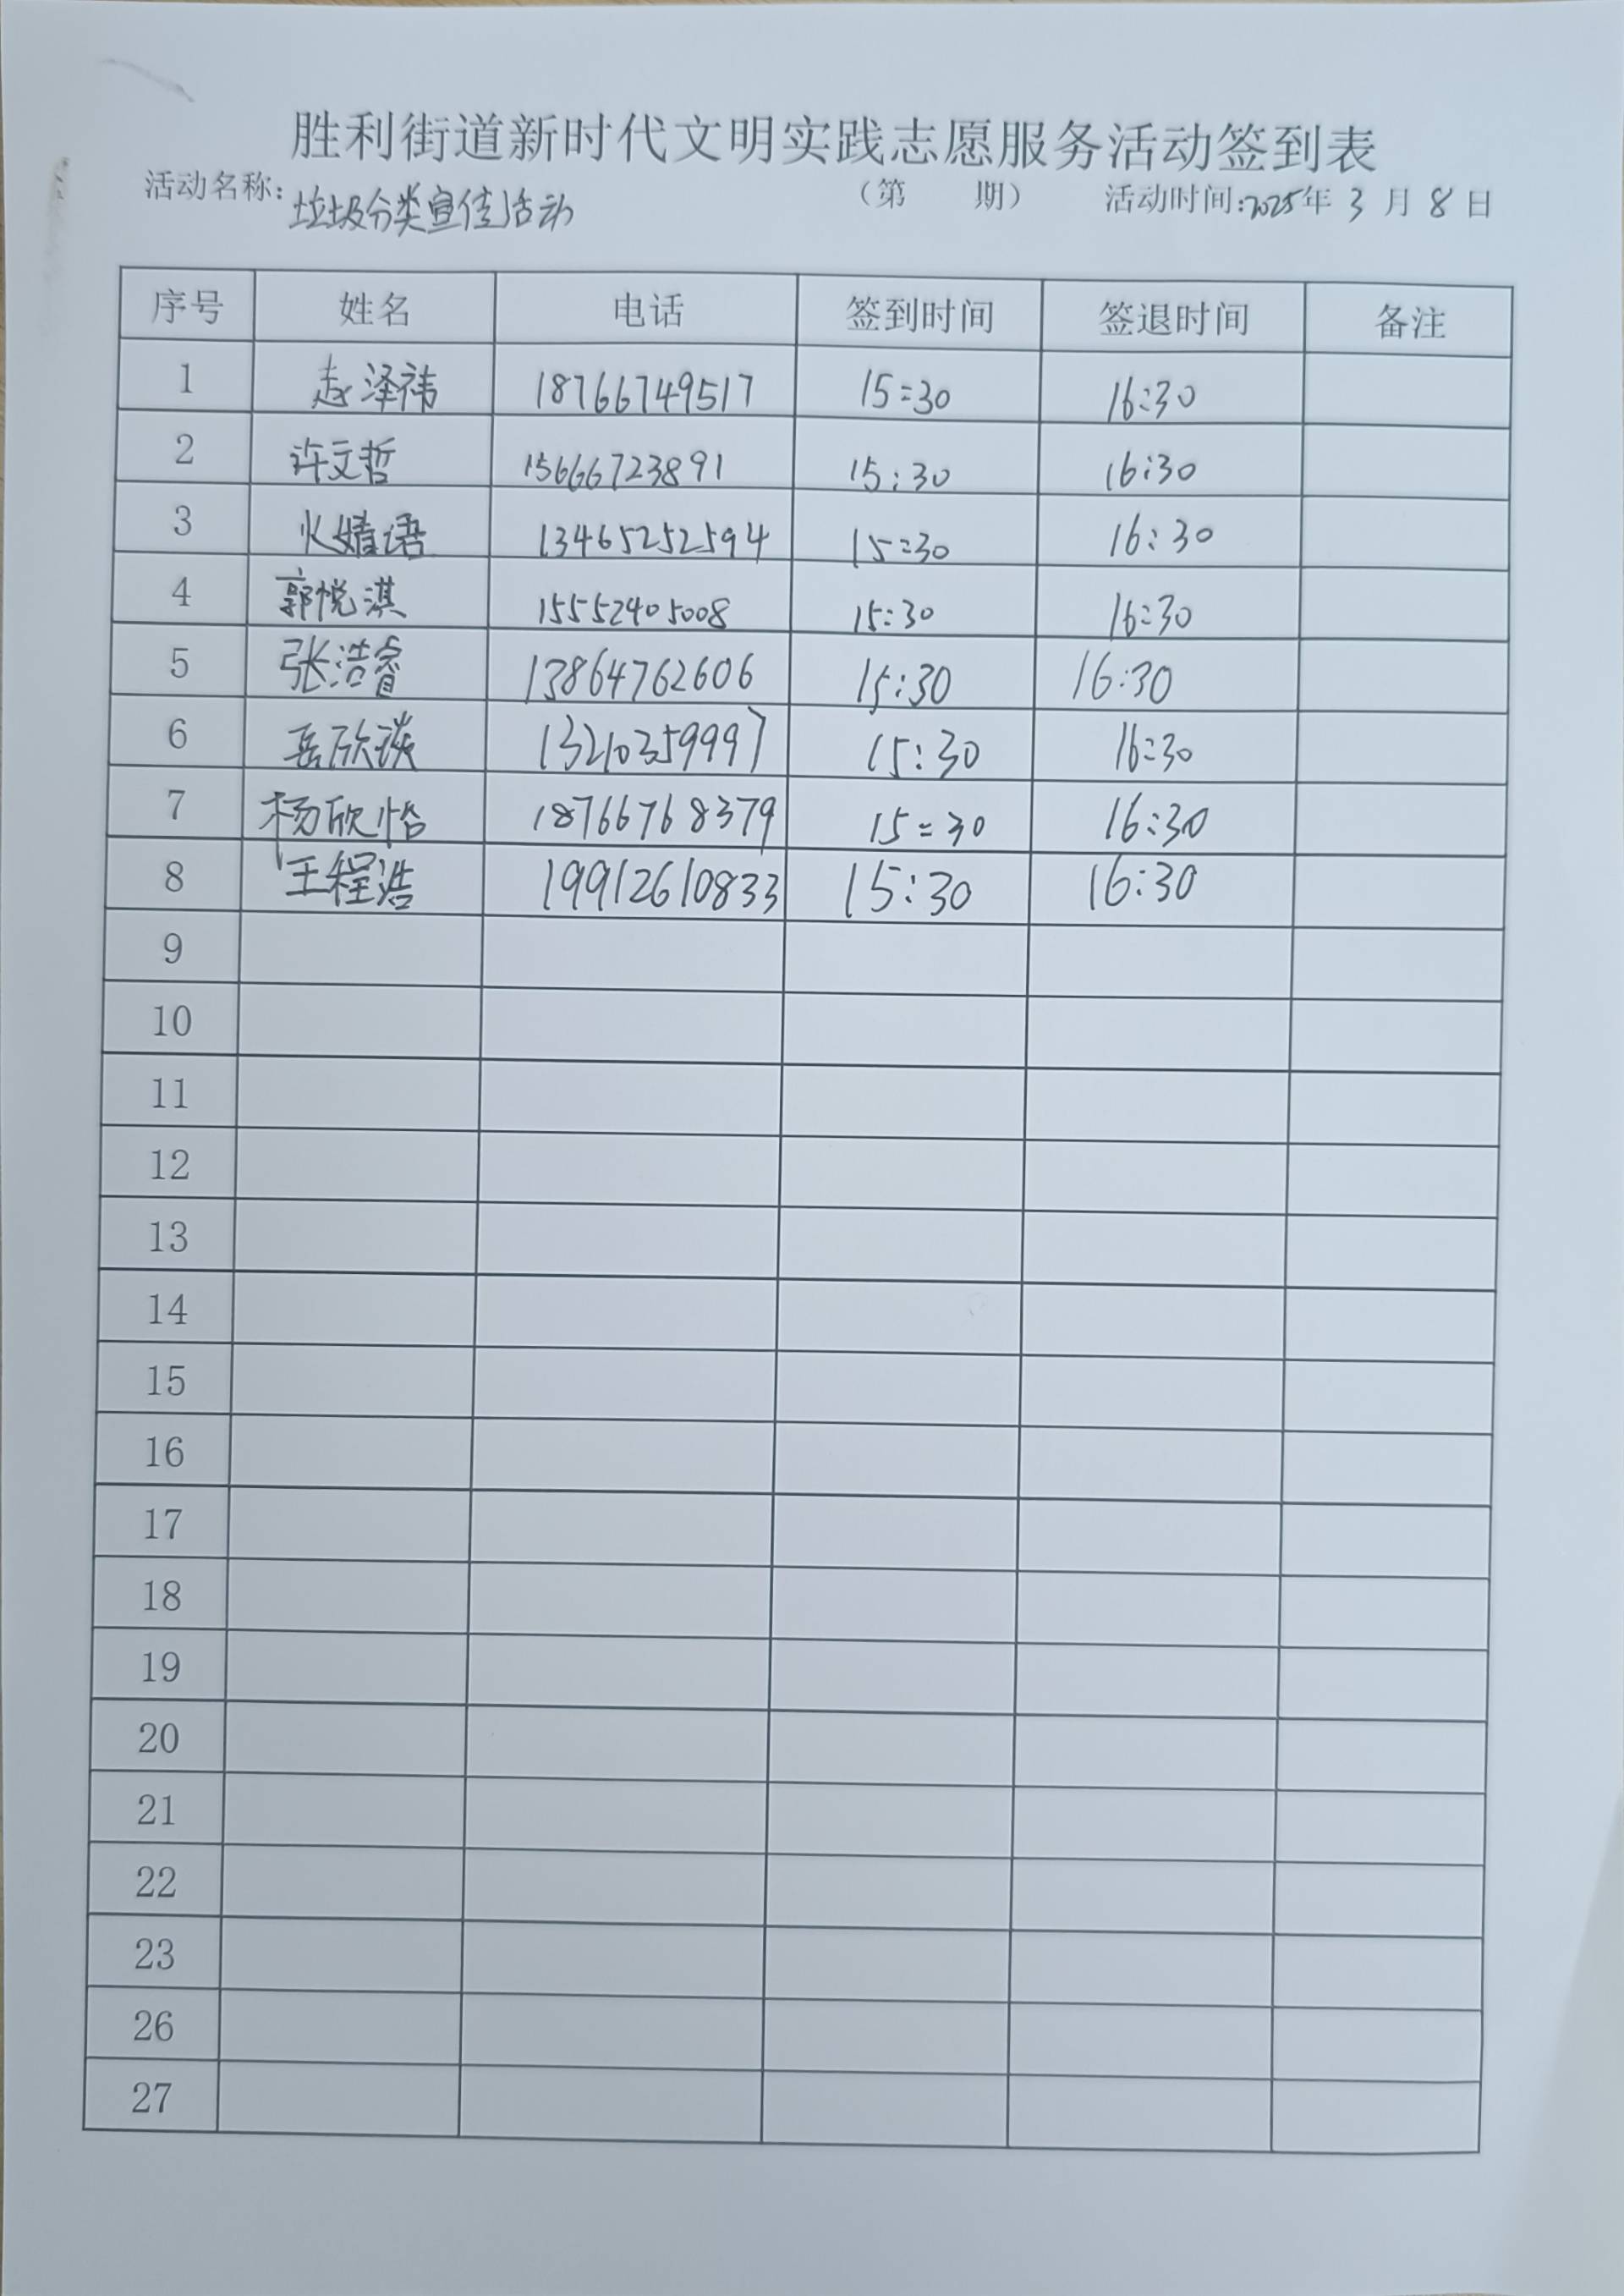 胜利街道新时代文明实践志愿服务活动签到表
活动名称:垃圾分类宣传活动 （第 期） 活动时间:2025年 3 月 8 日
序号 姓名 电话 签到时间 签退时间 备注
1 赵泽祎 18766749517 15:30 16:30
2 许文哲 15666723891 15:30 16:30
3 火婧语 13465252594 15:30 16:30
4 郭悦淇 15552405008 15:30 16:30
5 张浩睿 13864762606 15:30 16:30
6 岳欣 13210359997 15:30 16:30
7 杨欣怡 18766768379 15:30 16:30
8 王程浩 19912610833 15:30 16:30
9
10
11
12
13
14
15
16
17
18
19
20
21
22
23
26
27